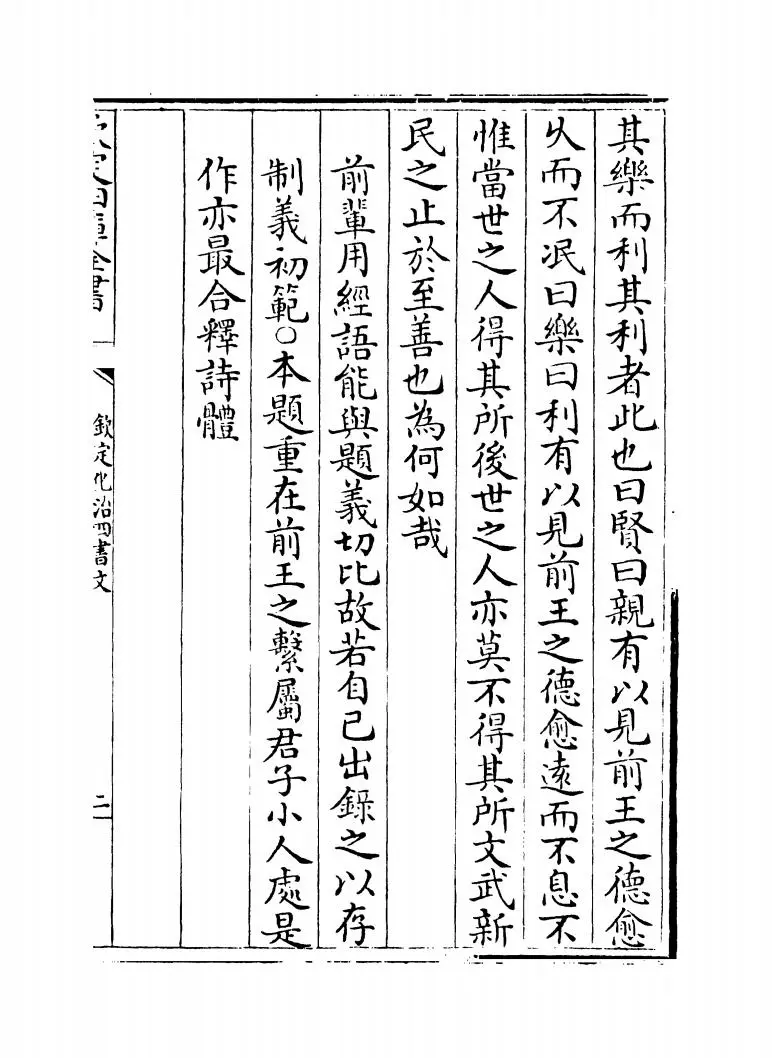 其樂而利其利者此也曰賢曰親有以見前王之德愈
久而不泯曰樂曰利有以見前王之德愈遠而不息不
惟當世之人得其所後世之人亦莫不得其所文武新
民之止於至善也為何如哉
前輩用經語能與題義切比故若自己出錄之以存
制義初範○本題重在前王之繫屬君子小人處是
作亦最合釋詩體
欽定四庫全書
欽定化治四書文
二